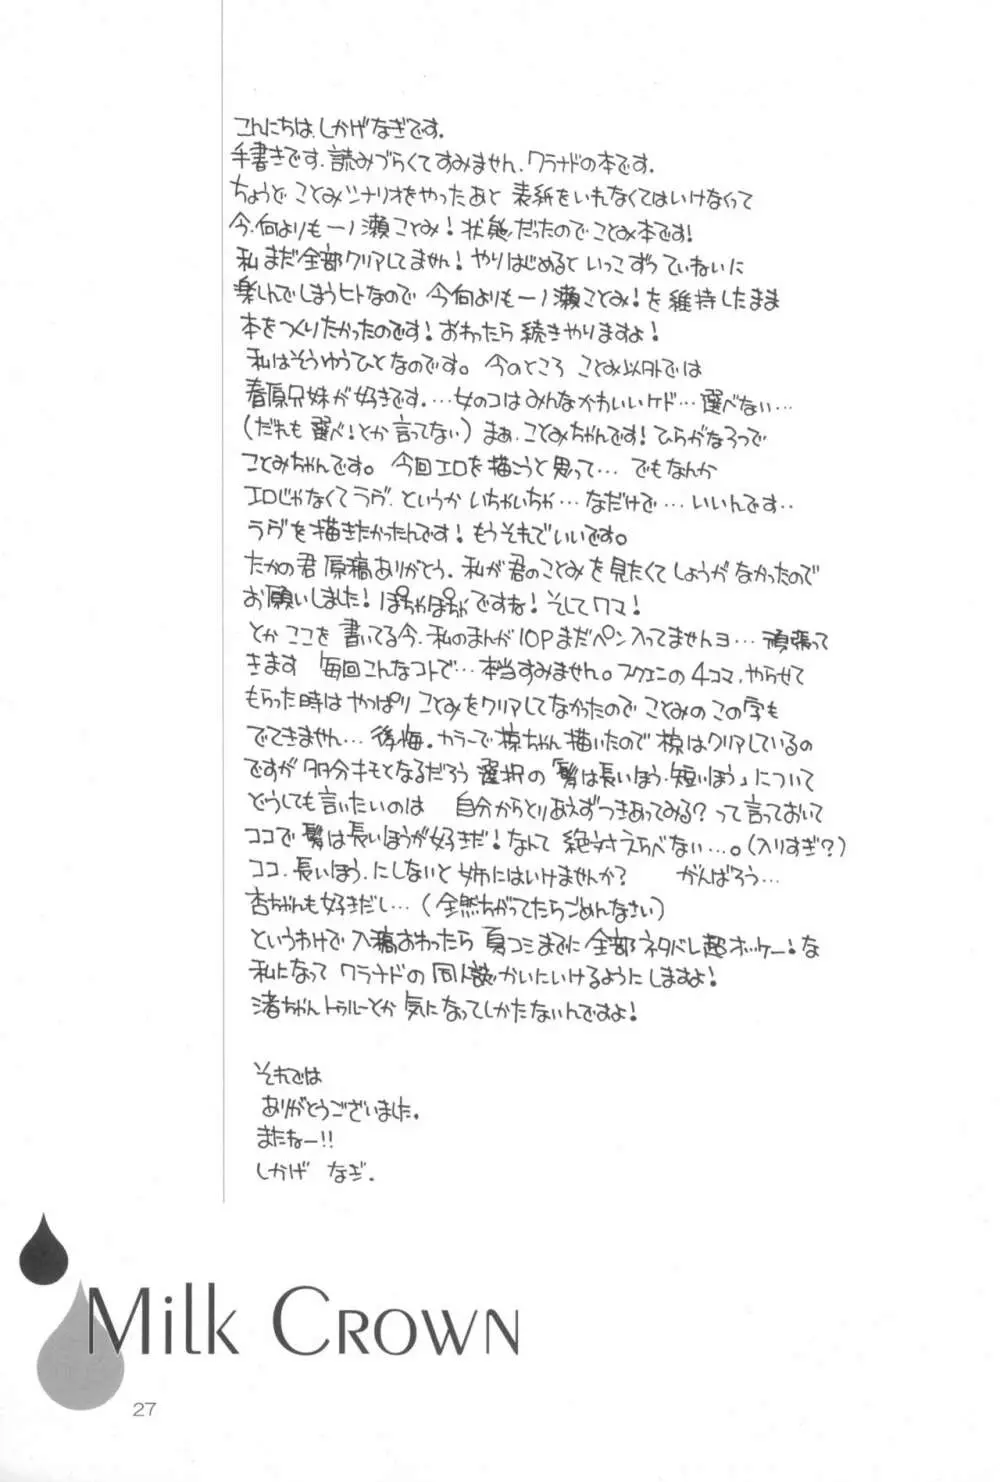 こんにちは、しかげなぎです。
手書きです。読みづらくてすみません。クラナドの本です。
ちょうど ことみシナリオをやったあと 表紙をいれなくてはいけなくって
今、何よりも一ノ瀬ことみ！状態だったので ことみ本です！
私 まだ全部クリアしてません！やりはじめると いっこずつていねいに
楽しんでしまうヒトなので 今何よりも一ノ瀬ことみ！を維持したまま
本をつくりたかったのです！おわったら続きやりますよ！
私はそうゆうひとなのです。今のところ ことみ以外では
春原兄妹が好きです。…女のコはみんなかわいいケド…選べない…
（だれも選べ！とか言ってない）まぁ、ことみちゃんです！ひらがなみっつで
ことみちゃんです。今回エロを描こうと思って… でもなんか
エロじゃなくてラヴ、というか いちゃいちゃ…なだけで…いいんです‥
ラヴを描きたかったんです！もうそれでいいです。
たかの君 原稿ありがとう。私が君のことみを見たくてしょうがなかったので
お願いしました！ぽちゃぽちゃですな！そしてクマ！
とか ここを 書いてる今、私のまんが10Pまだペン入ってませんヨ…頑張って
きます 毎回こんなコトで…本当すみません。スクエニの4コマ、やらせて
もらった時は やっぱり ことみをクリアしてなかったので ことみのこの字も
でてきません…後悔。カラーで椋ちゃん描いたので 椋はクリアしているの
ですが 多分キモとなるだろう 選択の「髪は長いほう・短いほう」について
どうしても言いたいのは 自分からとりあえずつきあってみる？って言っておいて
ココで髪は長いほうが好きだ！なんて 絶対えらべない…。（入りすぎ？）
ココ、長いほう、にしないと 姉にはいけませんか？ がんばろう…
杏ちゃんも好きだし…（全然ちがってたらごめんなさい）
というわけで 入稿おわったら 夏コミまでに 全部ネタバレ超オッケー！な
私になって クラナドの同人誌かいにいけるようにしますよ！
渚ちゃん トゥルーとか 気になってしかたないんですよ！
それでは
ありがとうございました。
またねー!!
しかげ なぎ．
Milk Crown
27